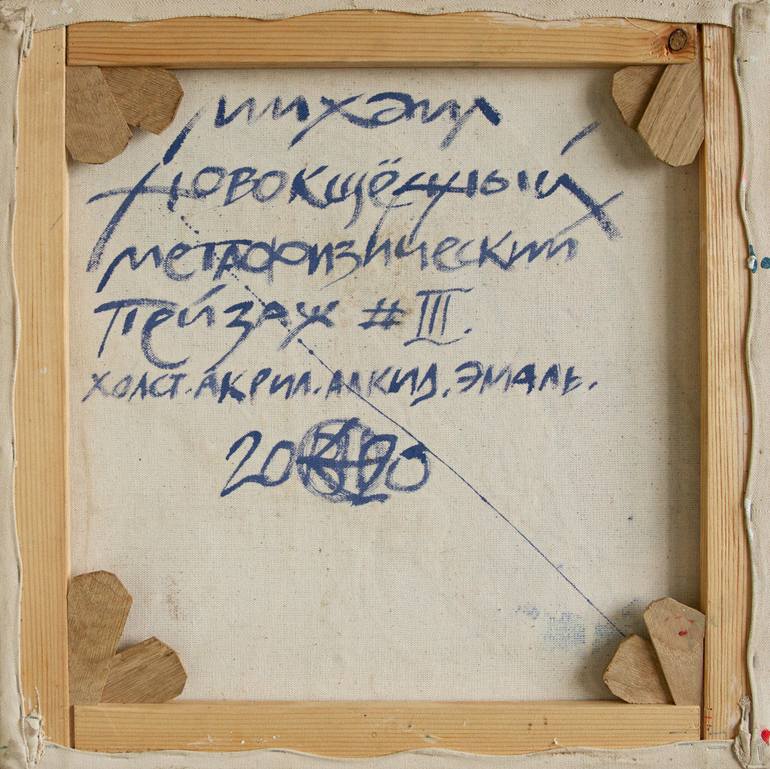 Михаил
Новокщённый
метафизический
пейзаж # III.
холст. акрил. алкид. эмаль.
2020